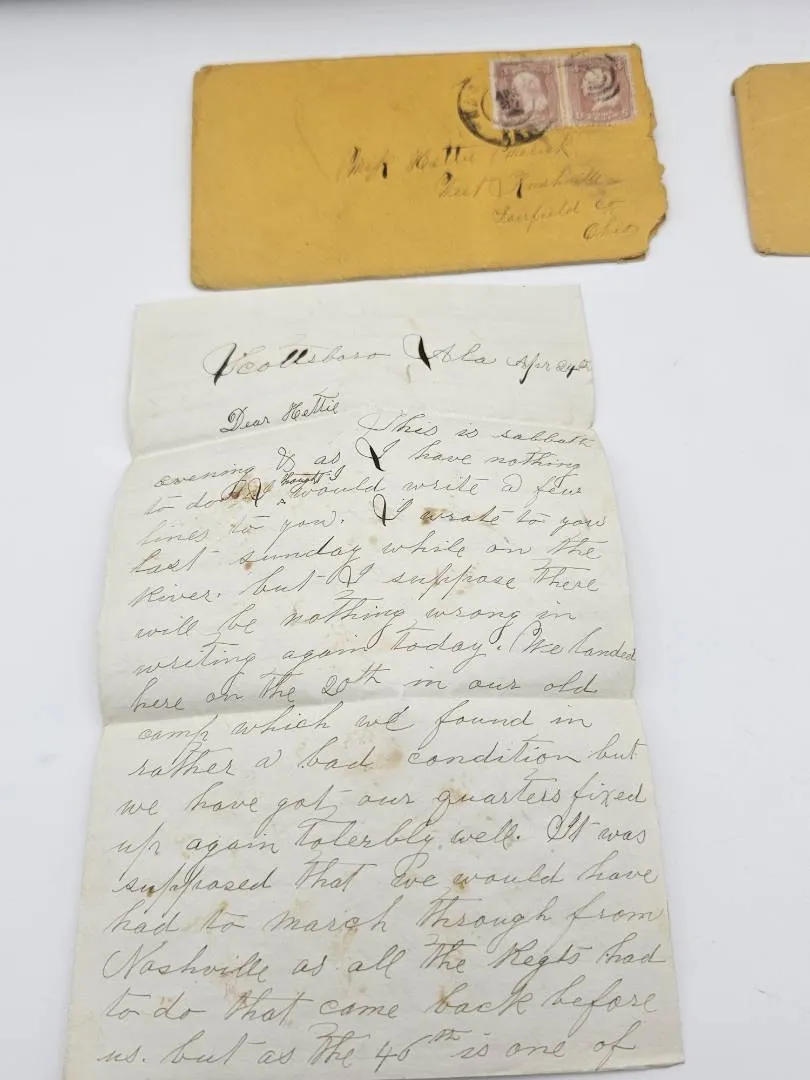 Miss Hettie
West Rushville
Fairfield Co
Ohio
Scottsboro Ala Apr 24th
Dear Hettie
This is sabbath
evening & as I have nothing
to do I thought I would write a few
lines to you. I wrote to you
last sunday while on the
River. but I suppose there
will be nothing wrong in
writing again today. We landed
here on the 20th in our old
camp which we found in
rather a bad condition but
we have got our quarters fixed
up again tolerbly well. It was
supposed that we would have
had to march through from
Nashville as all the Regts had
to do that came back before
us. but as the 46th is one of